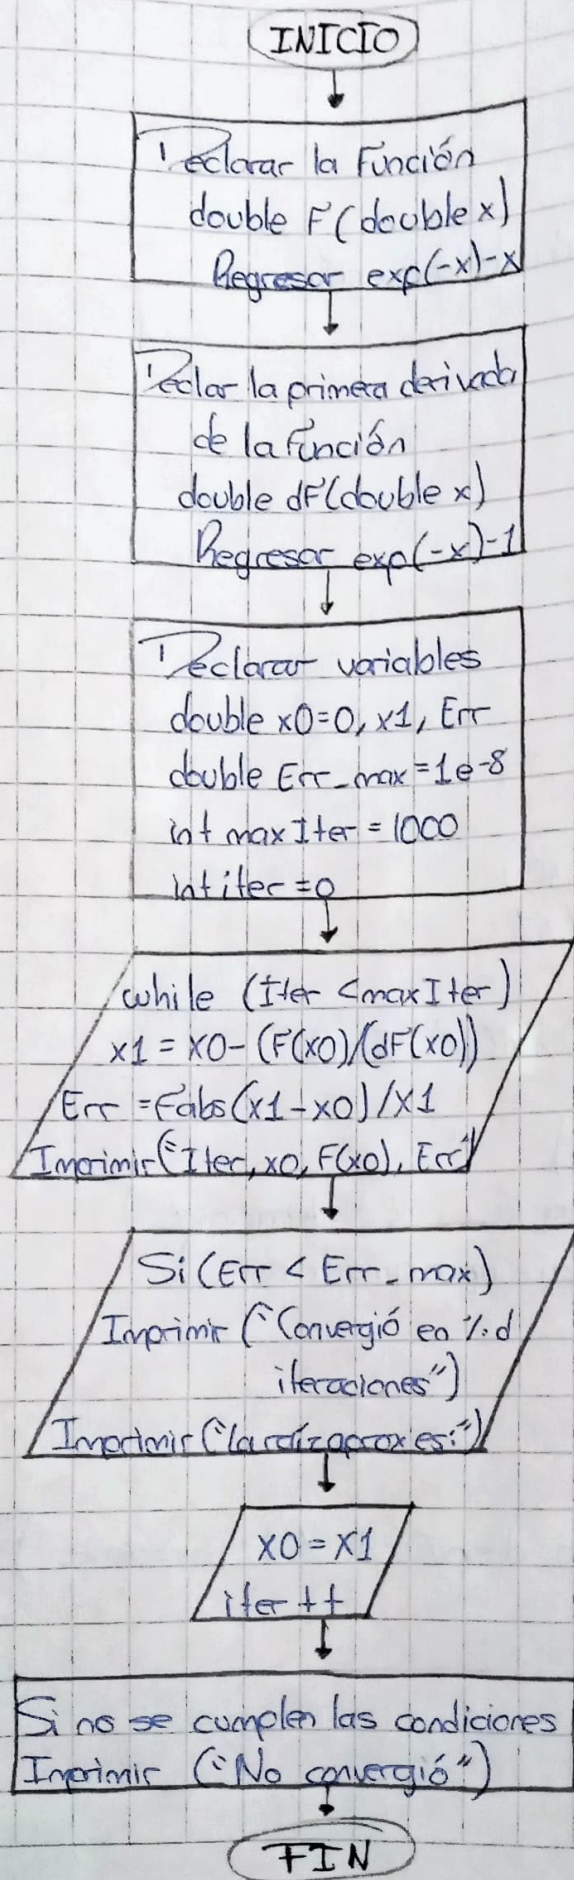 INICIO
Declarar la Función
double F(double x)
Regresar exp(-x)-x
Declar la primera derivada
de la función
double dF(double x)
Regresar exp(-x)-1
Declarar variables
double x0=0, x1, Err
double Err_max=1e-8
int maxIter = 1000
int iter =0
while (Iter <maxIter)
x1 = x0-(F(x0)/(dF(x0))
Err =Fabs(x1-x0)/x1
Imprimir("Iter, x0, F(x0), Err")
Si (Err < Err_max)
Imprimir ("Convergió en %d
iteraciones")
Imprimir ("la raíz aprox es:")
x0 = x1
iter ++
Si no se cumplen las condiciones
Imprimir ("No convergió")
FIN